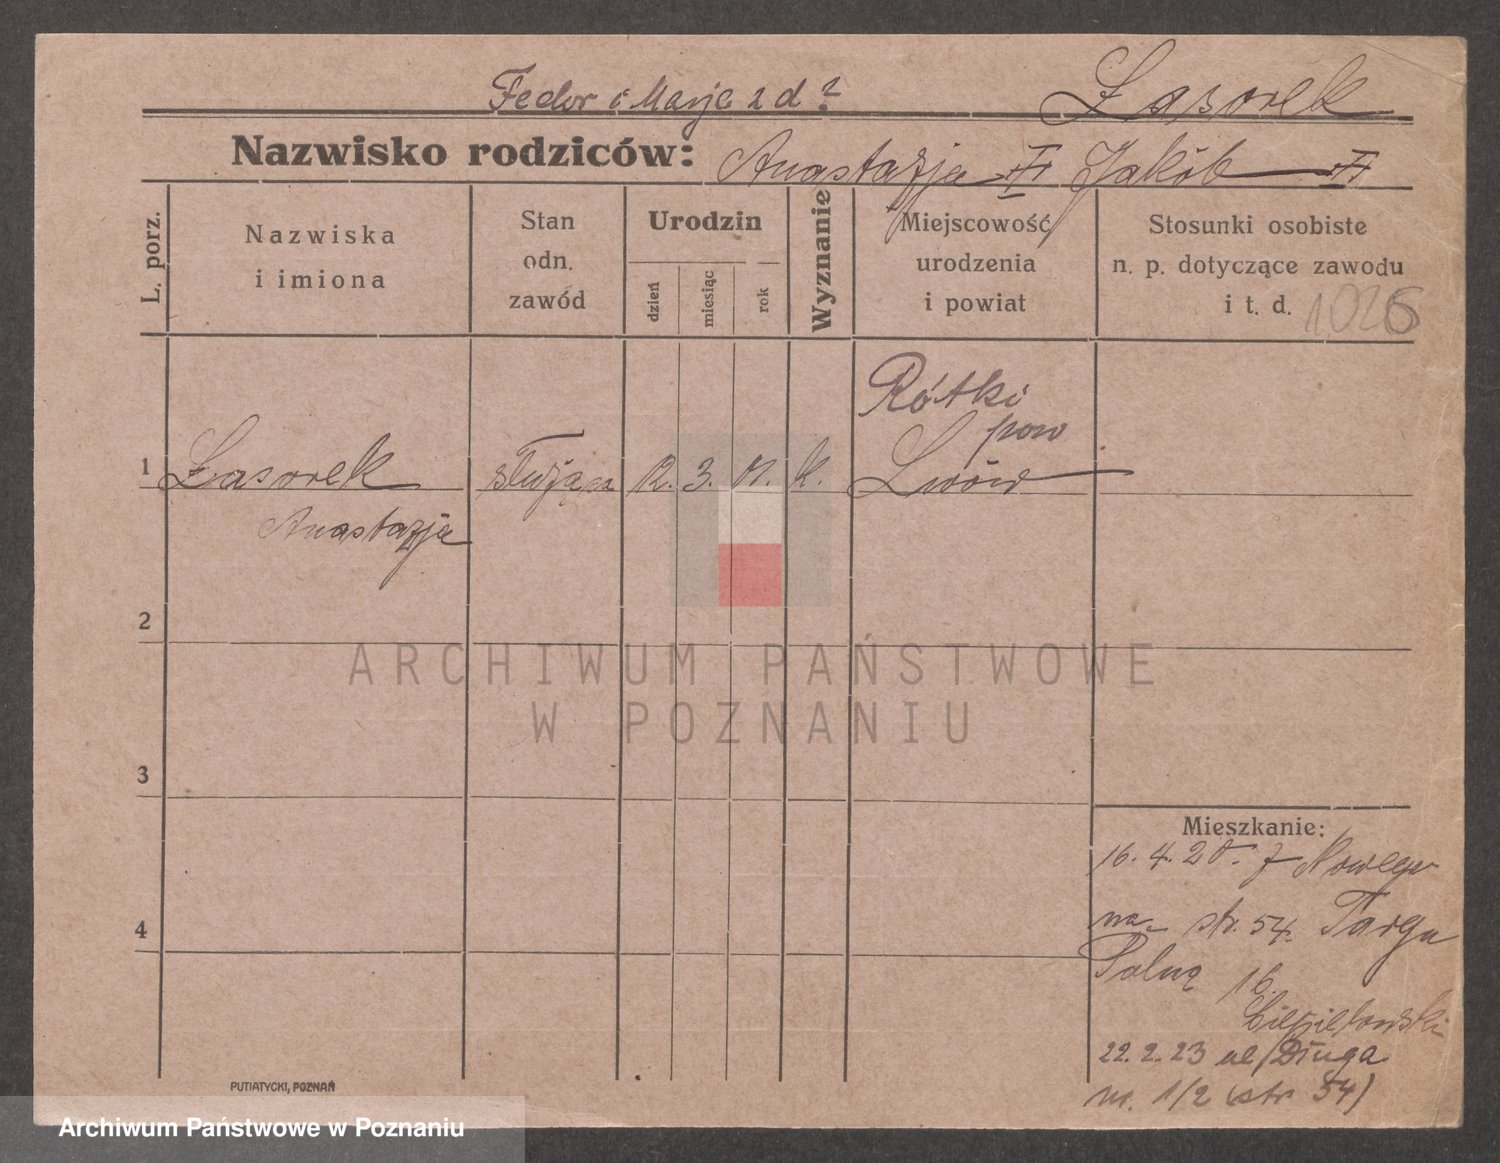 Fedor i Marja z d?
Łasorek
Nazwisko rodziców: Anastazja Jakób
L. porz.
Nazwiska
i imiona
Stan
odn.
zawód
Urodzin
dzień
miesiąc
rok
Wyznanie
Miejscowość
urodzenia
i powiat
Stosunki osobiste
n. p. dotyczące zawodu
i t. d. 1026
Rótki
pow
1 Łasorek służąca 12. 3. 01. k. Lwów
Anastazja
2
3
4
ARCHIWUM PAŃSTWOWE
W POZNANIU
Mieszkanie:
16. 4. 20. z Nowego
na str. 54. Targu
Polną 16.
22. 2. 23 ul. Długa
nr. 1/2 (str 54)
PUTIATYCKI, POZNAŃ
Archiwum Państwowe w Poznaniu